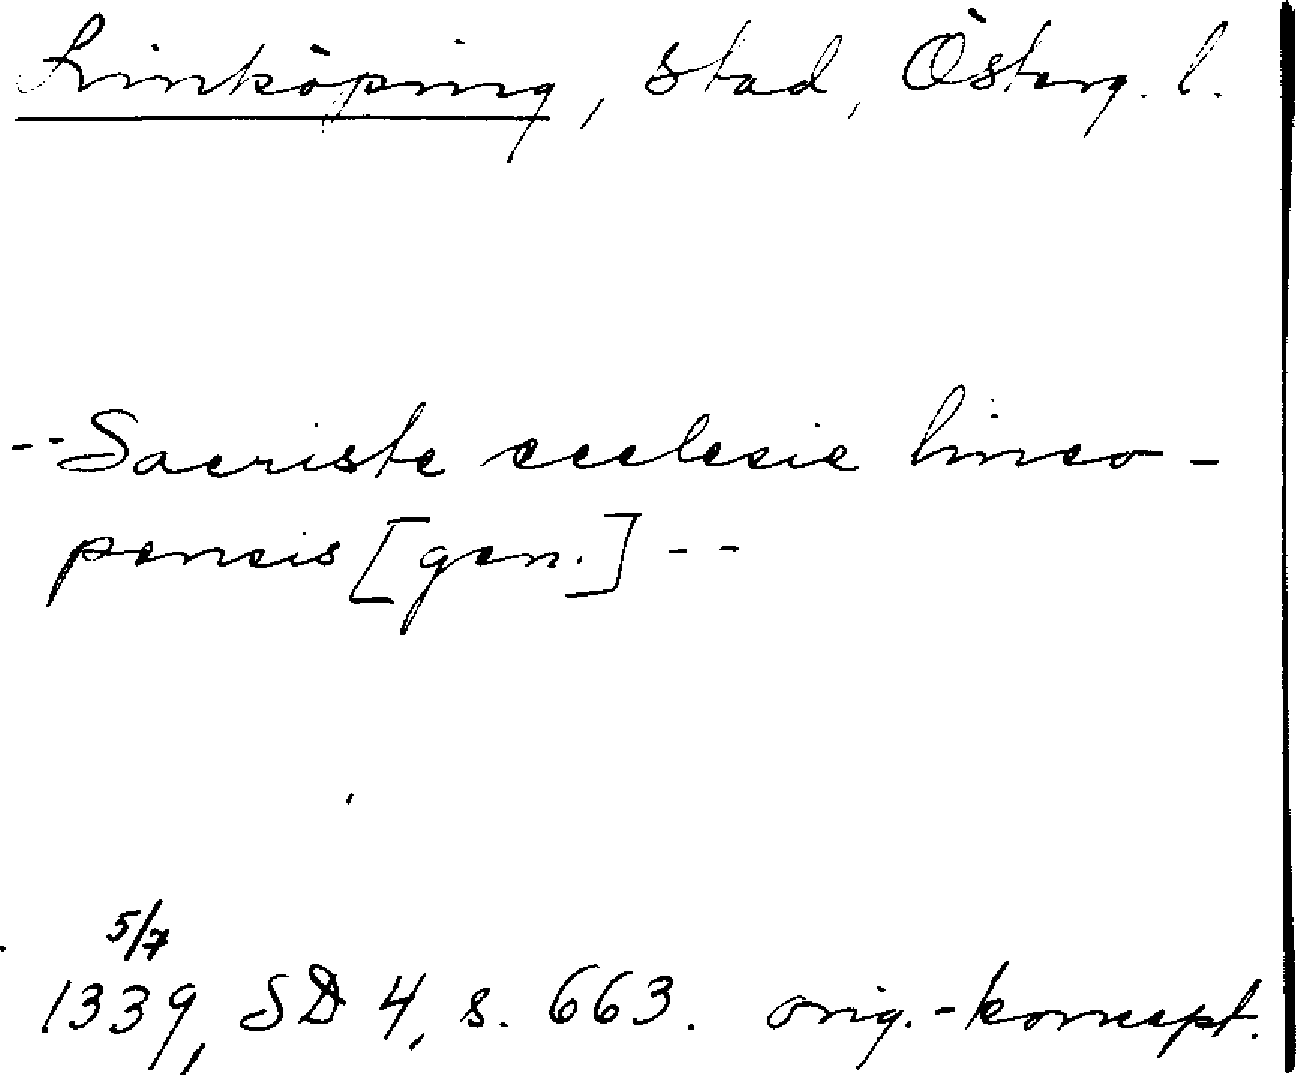 Linköping, stad, Österg. l.
--Sacriste ecclesie linco-
pensis [gen.] --
5/7
1339, SD 4, s. 663. orig.-koncept.